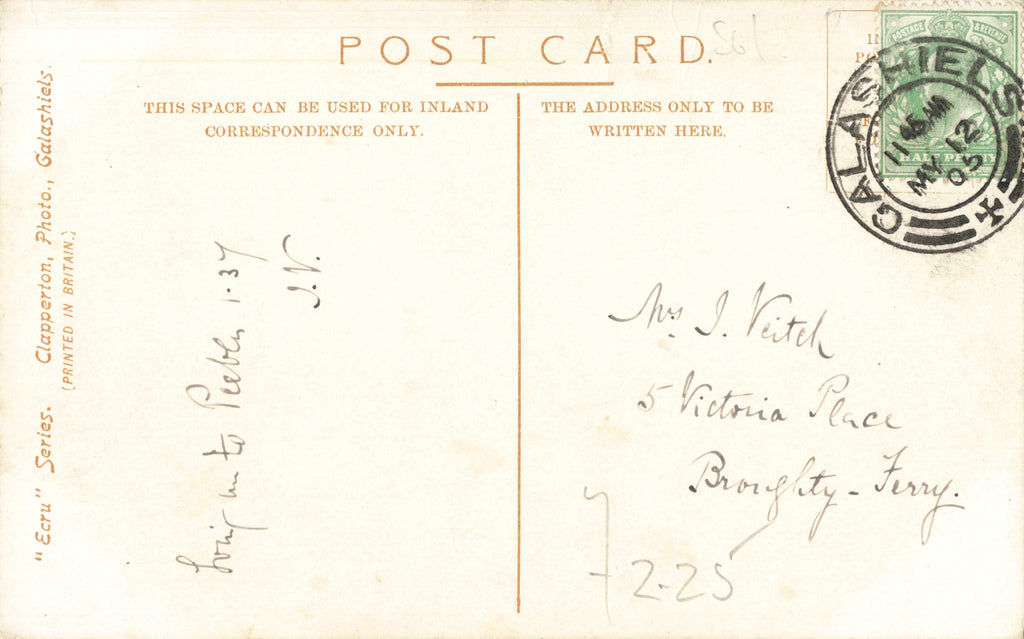 POST CARD.
561
THIS SPACE CAN BE USED FOR INLAND
CORRESPONDENCE ONLY.
THE ADDRESS ONLY TO BE
WRITTEN HERE.
POSTAGE & REVENUE
HALF PENNY
GALASHIELS
11 45 AM
MY 12
05
"Ecru" Series. Clapperton, Photo., Galashiels.
(PRINTED IN BRITAIN.)
on to Peebles 1.37
J.V.
Mrs J. Veitch
5 Victoria Place
Broughty-Ferry.
2.25